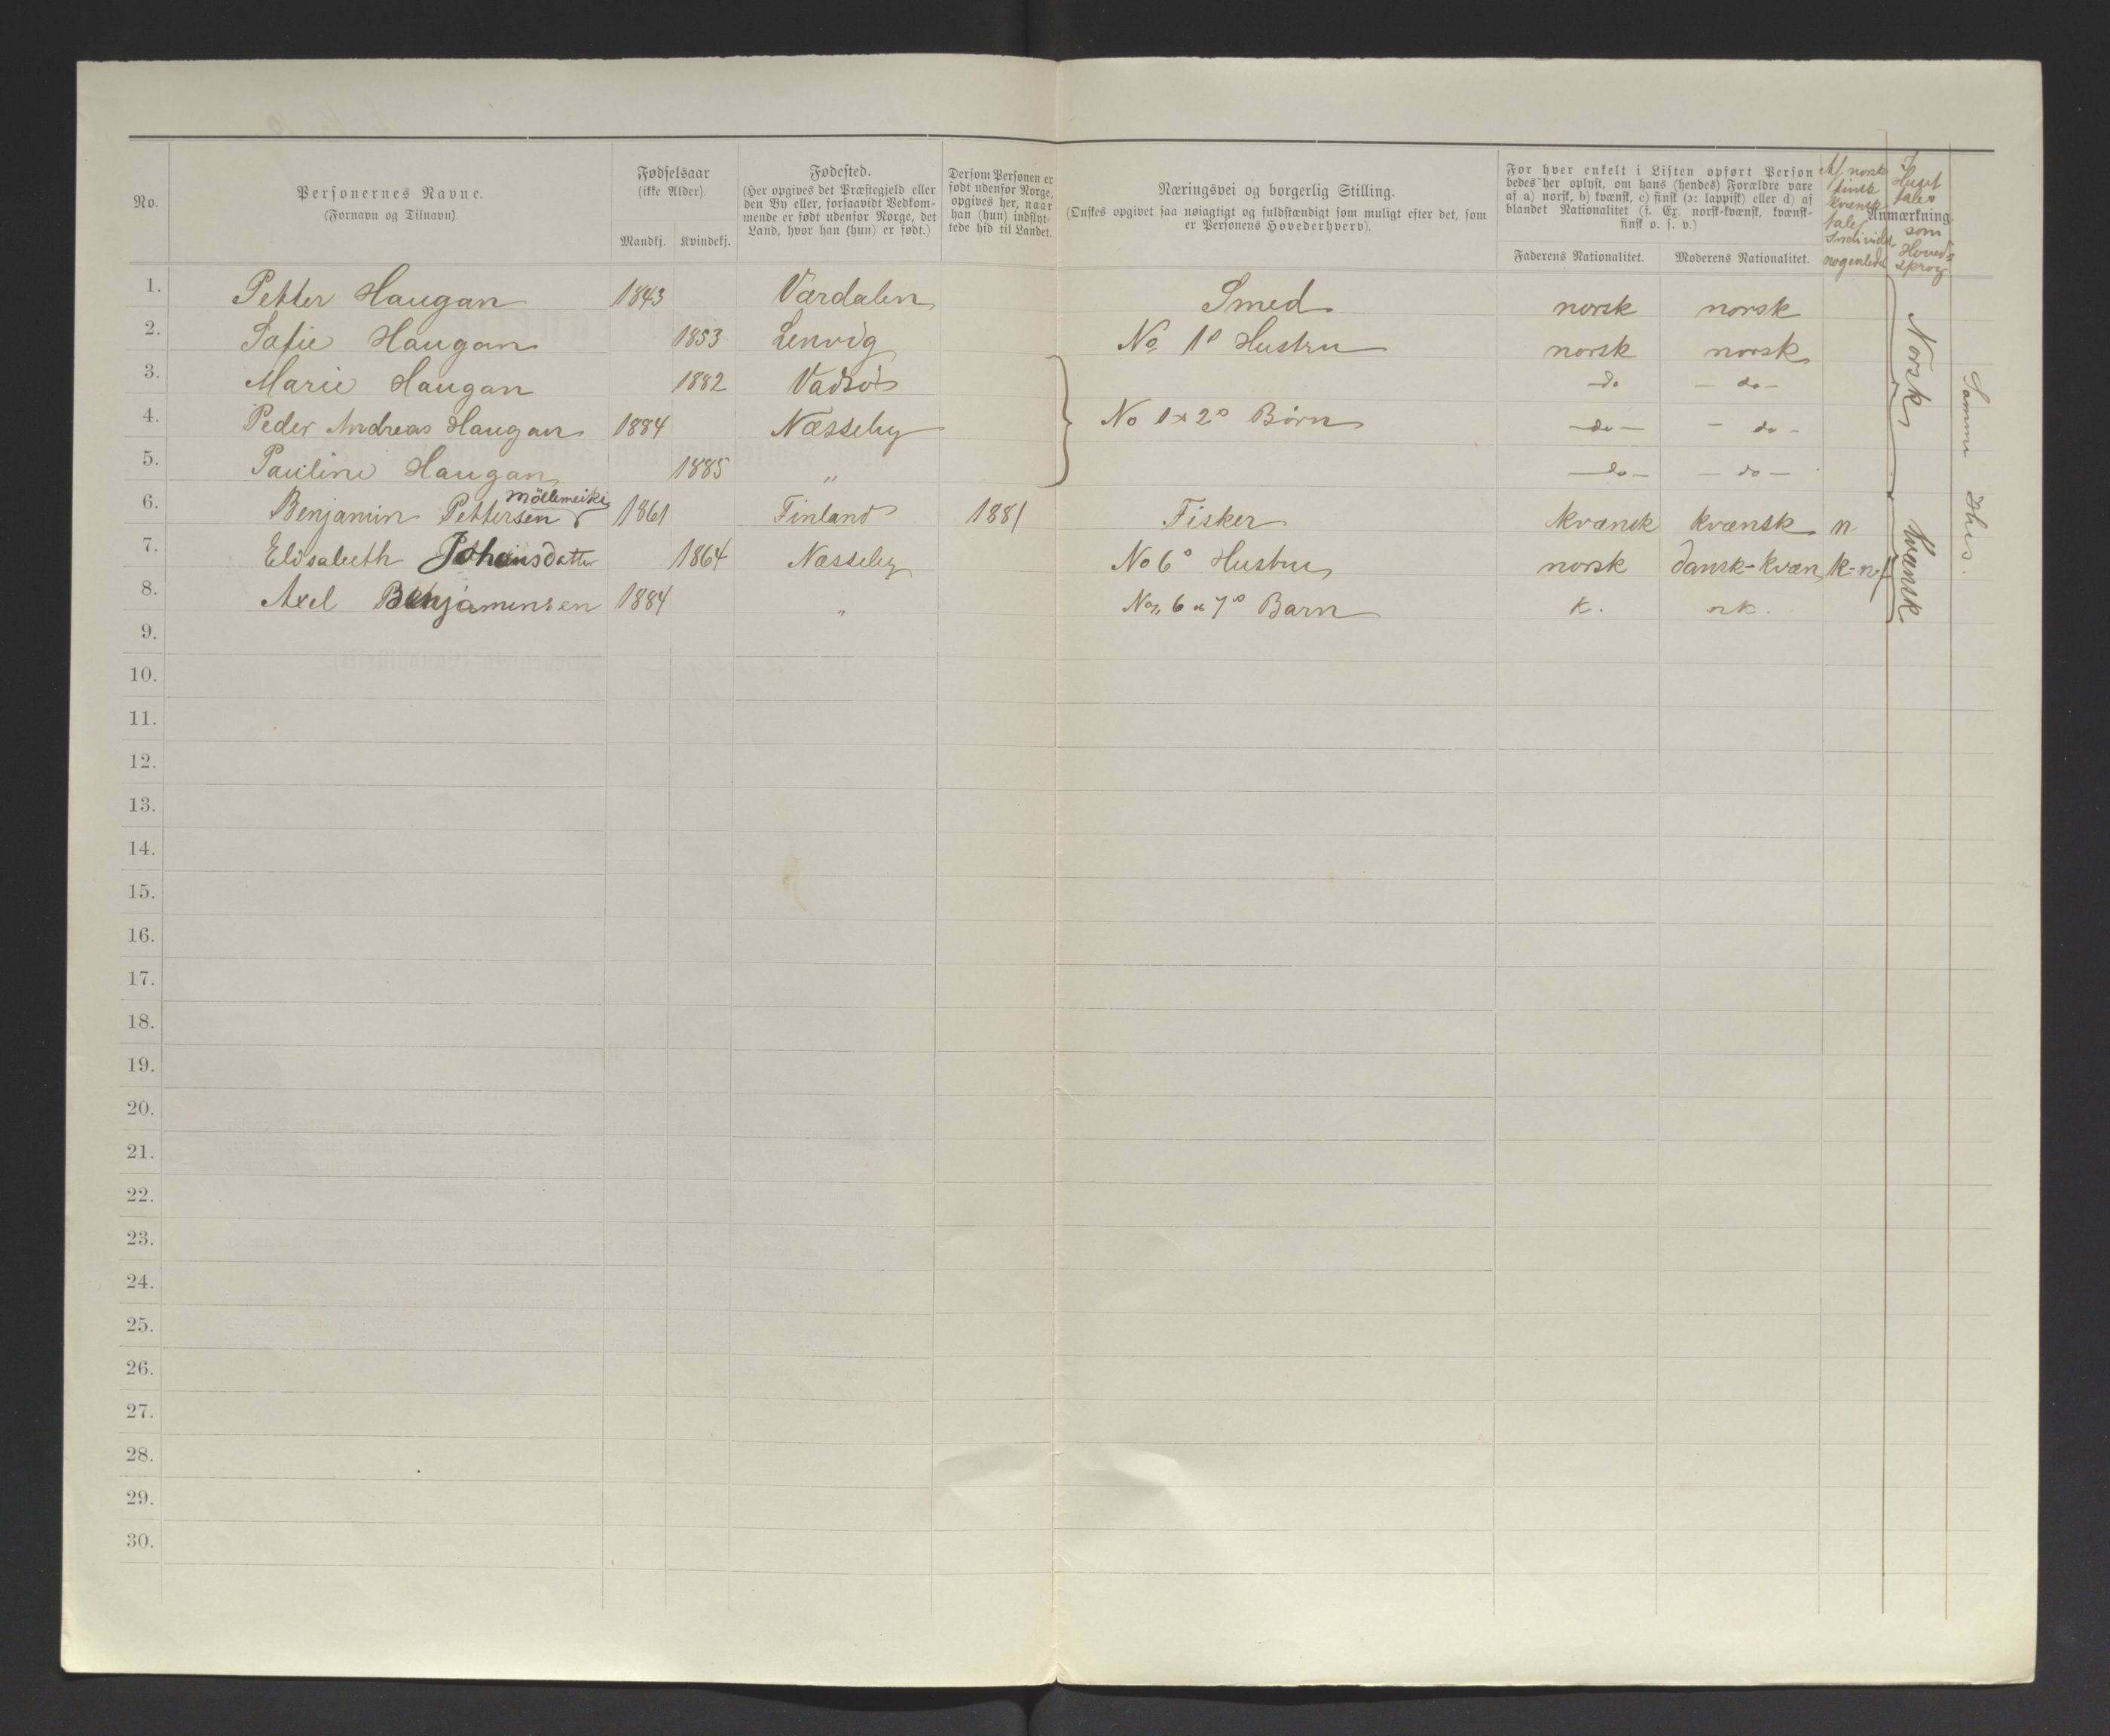 No.
Personernes Navne.
(Fornavn og Tilnavn).
Fødselsaar
(ikke Alder).
Mandkj. Kvindekj.
Fødested.
(Her opgives det Præstegjeld eller
den By eller, forsaavidt Vedkom-
mende er født udenfor Norge, det
Land, hvor han (hun) er født.)
Dersom Personen er
født udenfor Norge,
opgives her, naar
han (hun) indflyt-
tede hid til Landet.
Næringsvei og borgerlig Stilling.
(Ønskes opgivet saa nøiagtigt og fuldstændigt som muligt efter det, som
er Personens Hovederhverv).
For hver enkelt i Listen opført Person
bedes her oplyst, om hans (hendes) Forældre vare
af a) norsk, b) kvænsk, c) finsk (ɔ: lappisk) eller d) af
blandet Nationalitet (f. Ex. norsk-kvænsk, kvænsk-
finsk o. s. v.)
Faderens Nationalitet. Moderens Nationalitet.
Af norsk
finsk
kvænsk
taler
Individet
nogenledes
Anmærkning.
I
Huset
tales
som
Hoved-
sprog
1. Petter Haugan 1843 Værdalen Smed norsk norsk
2. Safie Haugan 1853 Lenvig No 1s Hustru norsk norsk
3. Marie Haugan 1882 Vadsö do - do -
4. Peder Andreas Haugan 1884 Næsseby No 1 & 2s Børn - do - - do -
5. Pauline Haugan 1885 " - do - - do -
Möllemeiki
6. Benjamin Pettersen 1861 Finland 1881 Fisker kvænsk kvænsk n
7. Elisabeth Johansdatter 1864 Næsseby No 6s Hustru norsk dansk-kvæn k-n-f
8. Axel Benjaminsen 1884 " No 6 & 7s Barn k. nk.
Norsk
Kvænsk
Samme Hus.
9.
10.
11.
12.
13.
14.
15.
16.
17.
18.
19.
20.
21.
22.
23.
24.
25.
26.
27.
28.
29.
30.